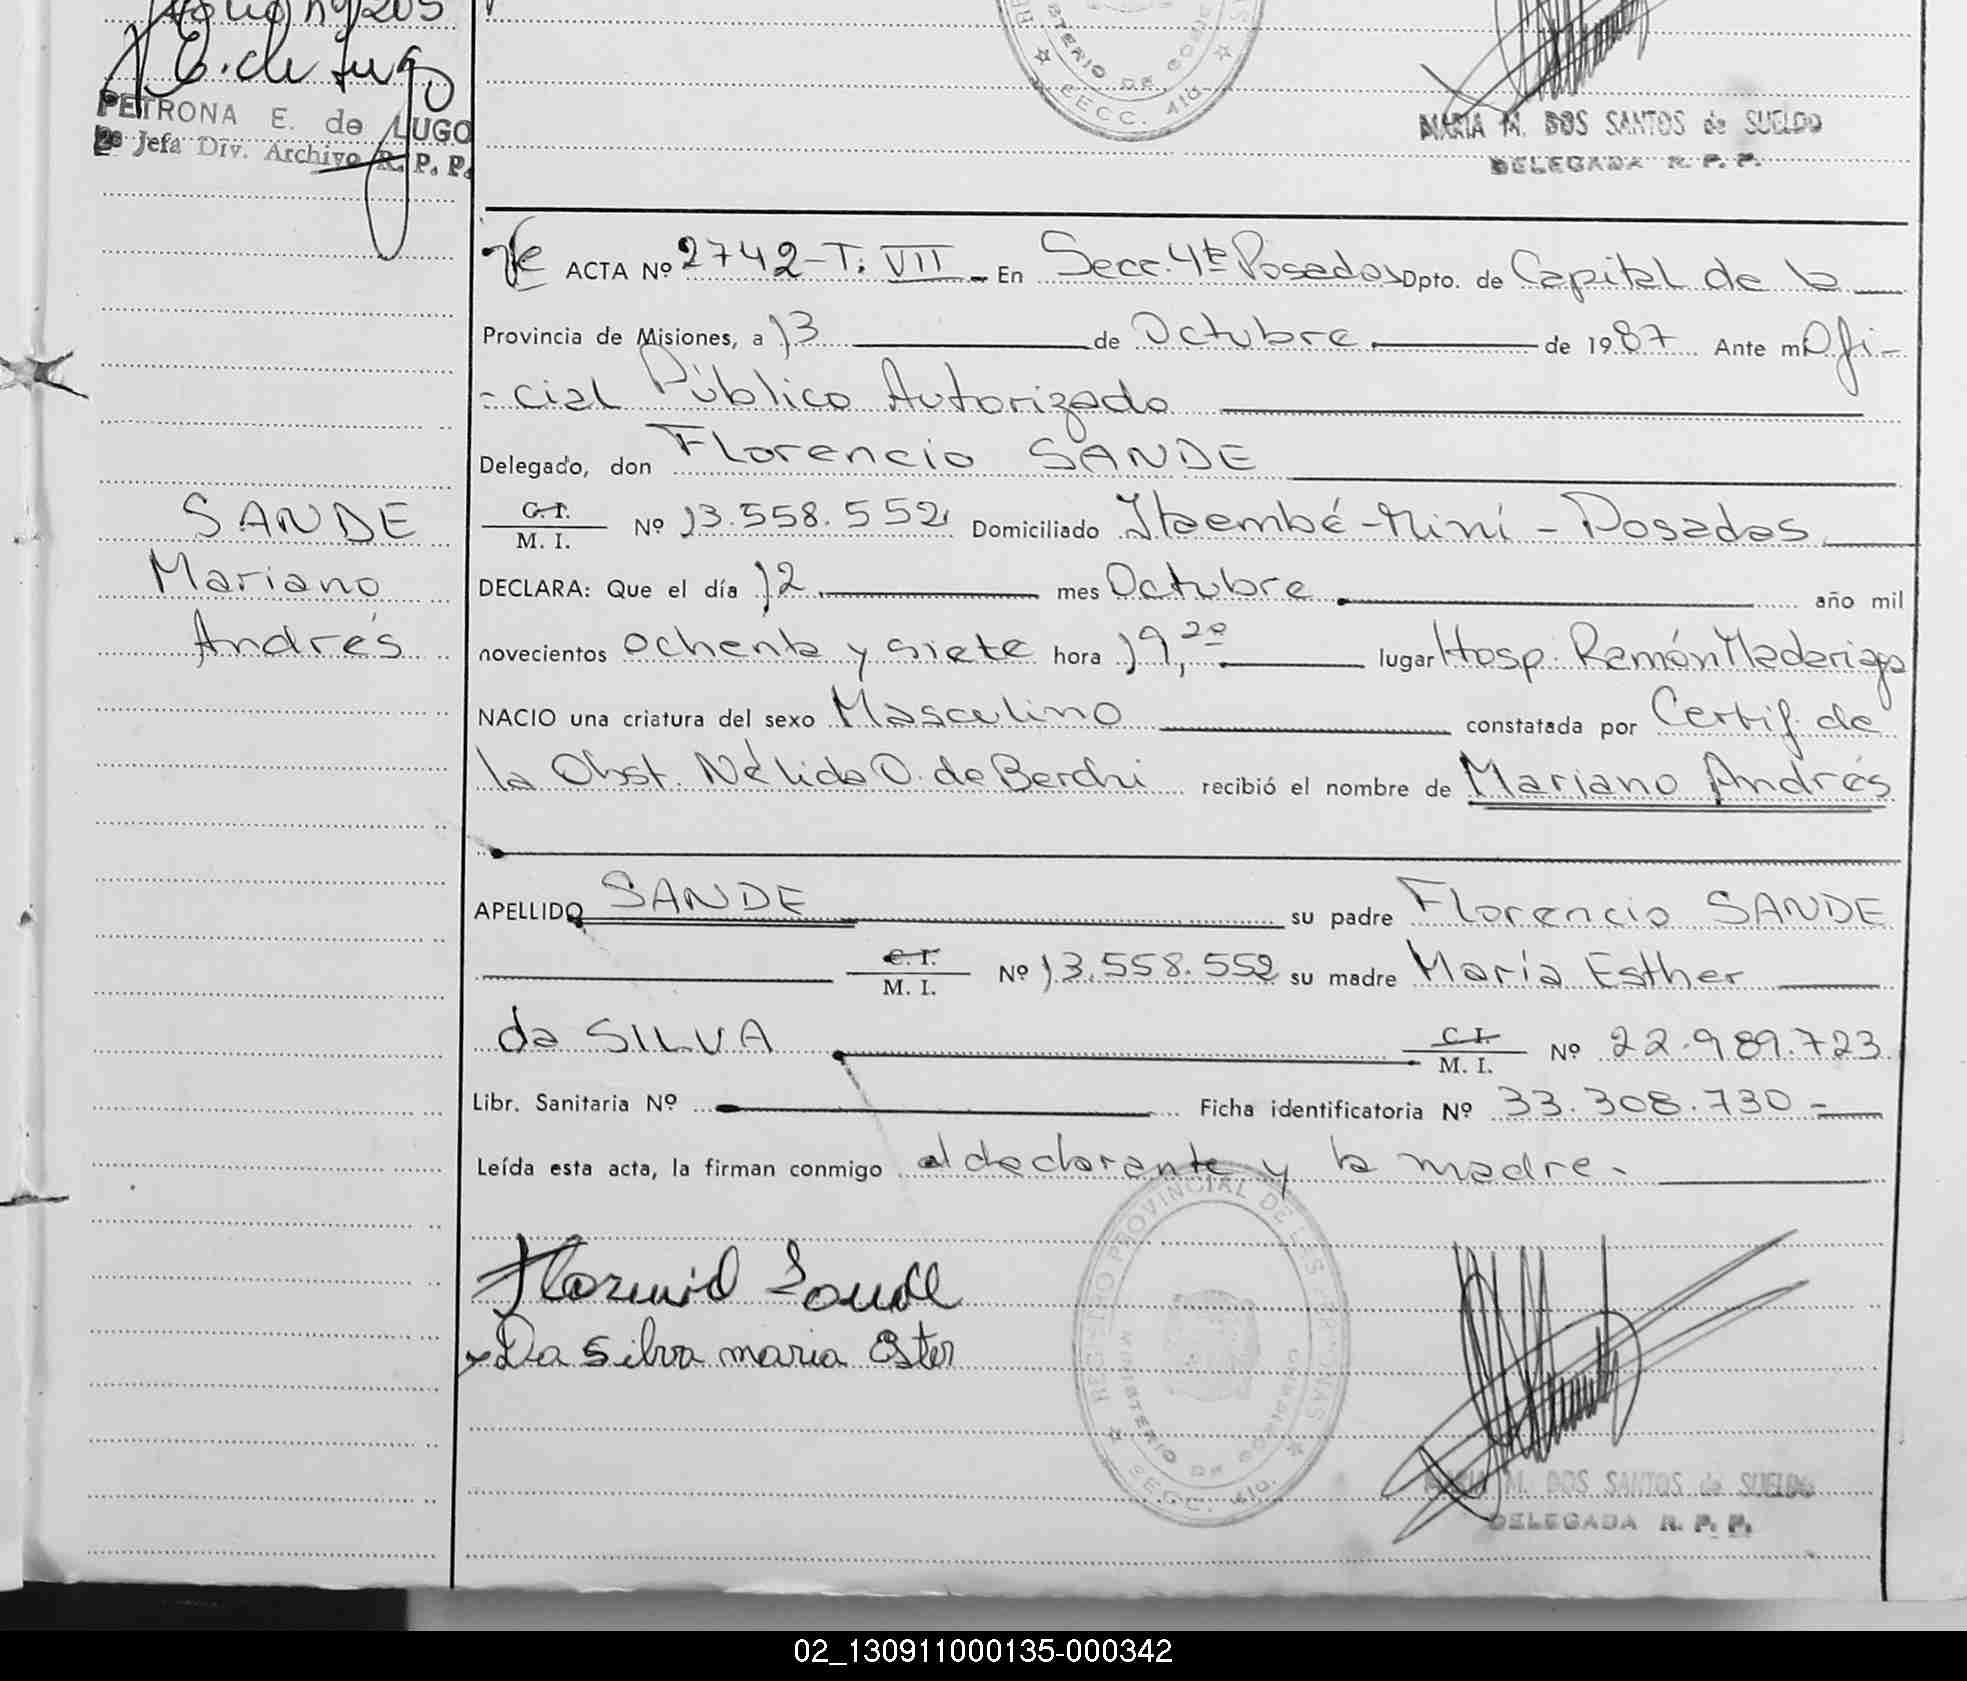 PETRONA E. de LUGO
Jefa Div. Archivo R. P. P.
MINISTERIO DE GOBIERNO
SECC. 4ta.
MARIA M. DOS SANTOS de SUELDO
DELEGADA R. P. P.
ACTA Nº 2742-T: VII - En Secc. 4ta Posadas Dpto. de Capital de la
Provincia de Misiones, a 13 de Octubre de 1987 Ante mí Ofi-
-cial Público Autorizado
Delegado, don Florencio SANDE
C. I.
M. I. Nº 13.558.552 Domiciliado Itaembé-Miní - Posadas
DECLARA: Que el día 12 mes Octubre año mil
novecientos ochenta y siete hora 19,20 lugar Hosp. Ramón Madariaga
NACIO una criatura del sexo Masculino constatada por Certif. de
la Obst. Nélida O. de Berchi recibió el nombre de Mariano Andrés
SANDE
Mariano
Andrés
APELLIDO SANDE su padre Florencio SANDE
C. I.
M. I. Nº 13.558.552 su madre María Esther
da SILVA C. I.
M. I. Nº 22.989.723
Libr. Sanitaria Nº Ficha identificatoria Nº 33.308.730 -
Leída esta acta, la firman conmigo el declarante y la madre.
REGISTRO PROVINCIAL DE LAS PERSONAS
MINISTERIO DE GOBIERNO
SECC. 4ta.
Da Silva maria Ester
MARIA M. DOS SANTOS de SUELDO
DELEGADA R. P. P.
02_130911000135-000342